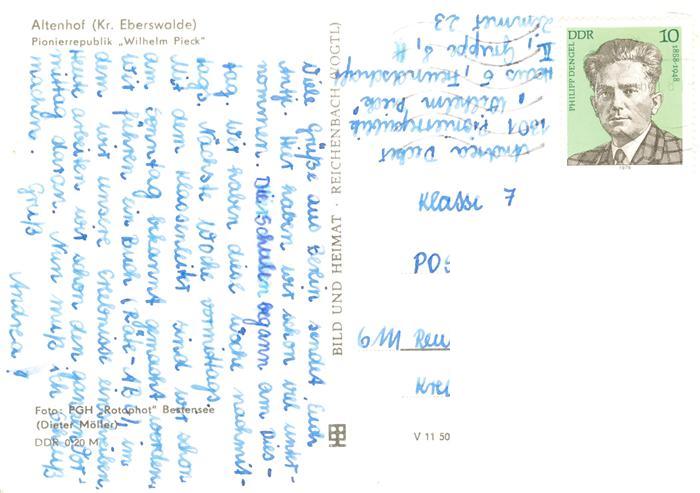 Altenhof (Kr. Eberswalde)
Pionierrepublik „Wilhelm Pieck"
Viele Grüße aus Berlin sendet Euch
Anj. Wir haben hier schon viel unter-
nommen. Die Schulen begann am Diens-
tag. Wir haben diese Woche nachmit-
tags. Nächste Woche vormittags.
Mit dem Klassenleiter sind wir schon
am Sonntag bekannt gemacht worden.
Wir führen ein Buch (Räte-ABC), in
dem wir unsere Erlebnisse einschreiben.
Heute arbeiten wir schon den ganzen Vor-
mittag daran. Nun muß ich Schluß
machen.
Gruß
Andrea!
Foto: PGH "Rotophot" Bestensee
(Dieter Möller)
DDR 0,20 M
BILD UND HEIMAT · REICHENBACH (VOGTL)
V 11 50
Andrea
1301 Pionierrepublik
„Wilhelm Pieck"
Haus 6, Freundschaft
II, Gruppe 8,
Zimmer 23
DDR 10
PHILIPP DENGEL
1888-1948
1978
Klasse 7
PO
611 Reu
Krei